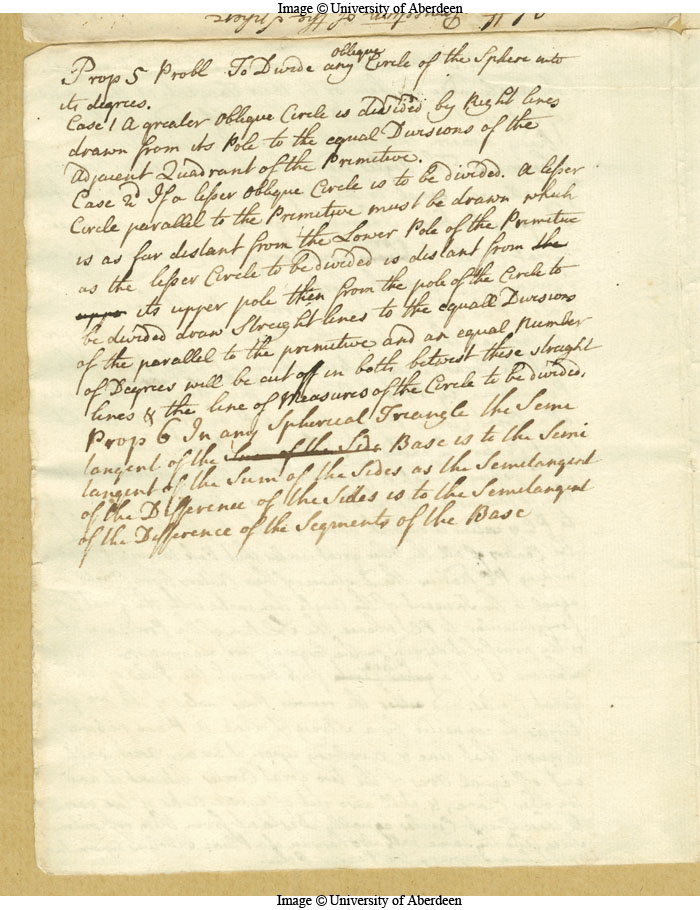 Image © University of Aberdeen
Prop 5 Probl To Divide any oblique Circle of the Sphere into
its degrees.
Case 1 A greater Oblique Circle is divided by Right lines
drawn from its Pole to the equal Divisions of the
Adjacent Quadrant of the Primitive.
Case 2d If a lesser Oblique Circle is to be divided. A lesser
Circle parallel to the Primitive must be drawn which
is as far distant from the Lower Pole of the Primitive
as the lesser Circle to be divided is distant from the
upper its upper pole then from the pole of the Circle to
be divided draw Streight lines to the equall Divisions
of the parallel to the primitive and an equal Number
of Degrees will be cut off in both betwixt these straight
lines & the line of Measures of the Circle to be divided.
Prop 6 In any Spherical Triangle the Seme
tangent of the Sum of the Side Base is to the Semi
tangent of the Sum of the Sides as the Semetangent
of the Difference of the Sides is to the Semetangent
of the Difference of the Segments of the Base
Image © University of Aberdeen